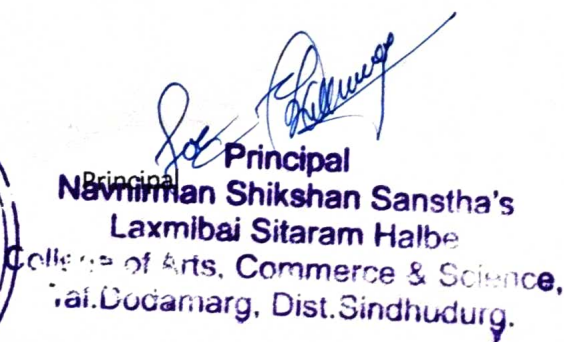 Principal
Principal
Navnirman Shikshan Sanstha's
Laxmibai Sitaram Halbe
College of Arts, Commerce & Science,
Tal.Dodamarg, Dist.Sindhudurg.